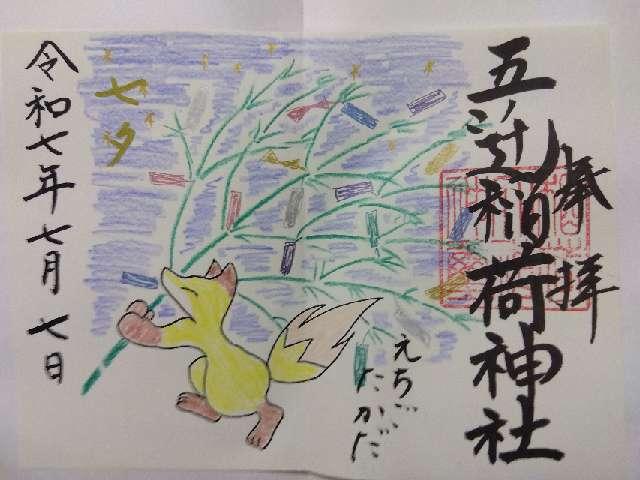 奉拝
五辻稲荷神社
えちご
たかだ
七夕
令和七年七月七日